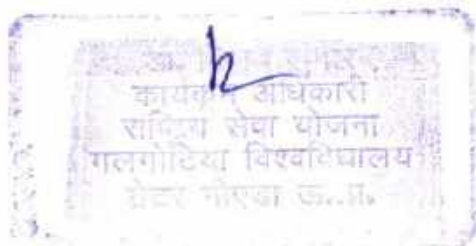 डा.
कार्यक्रम अधिकारी
राष्ट्रिय सेवा योजना
गलगोटिया विश्वविद्यालय
ग्रेटर नोएडा ऊ..प्र.